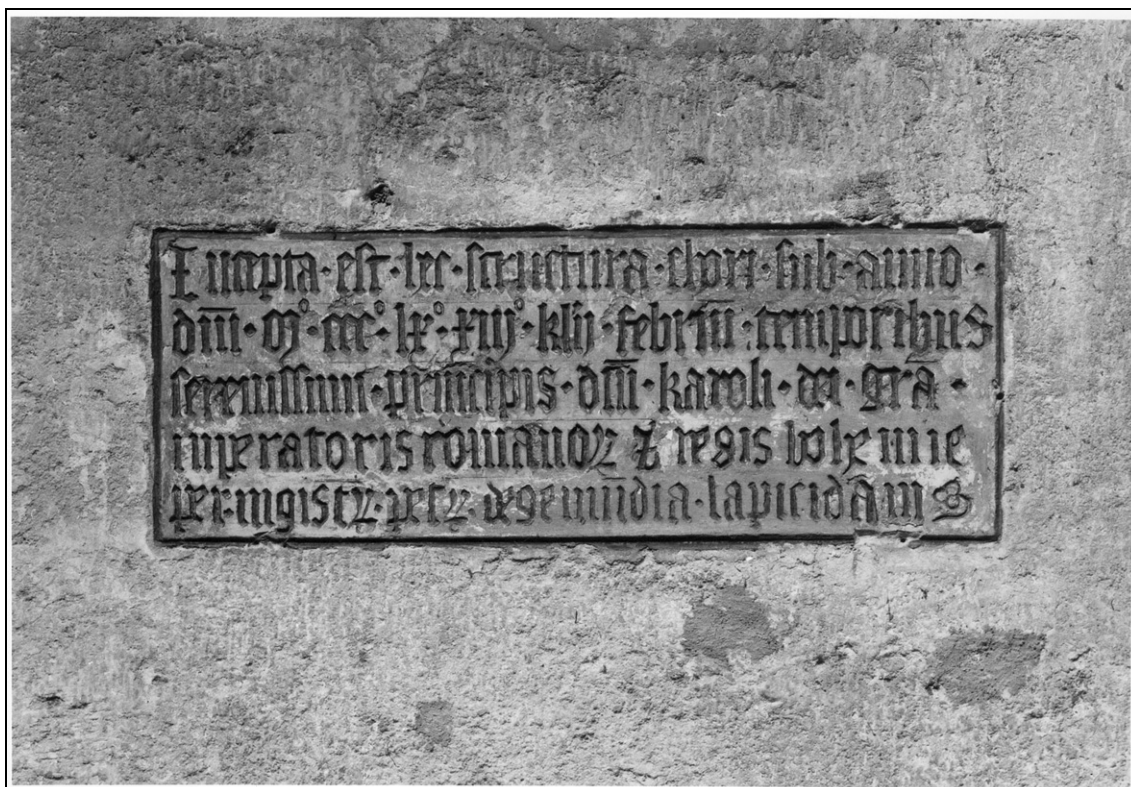 Incepta · est · hec · structura · chori · sub · anno ·
dn̄i · mº · cccº · lxº · xiij · kl̄ij · febr̄ii · temporibus
serenissimi · principis · dn̄i · karoli · dei · gr̄a ·
imperatoris romanoꝝ ⁊ regis bohemie
per · mgistꝝ · petꝝ · de gemūdia · lapicidam